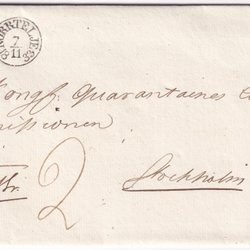 NORRTELJE
7
11
Kongl Quarantaines C
missionen
2
Stockholm